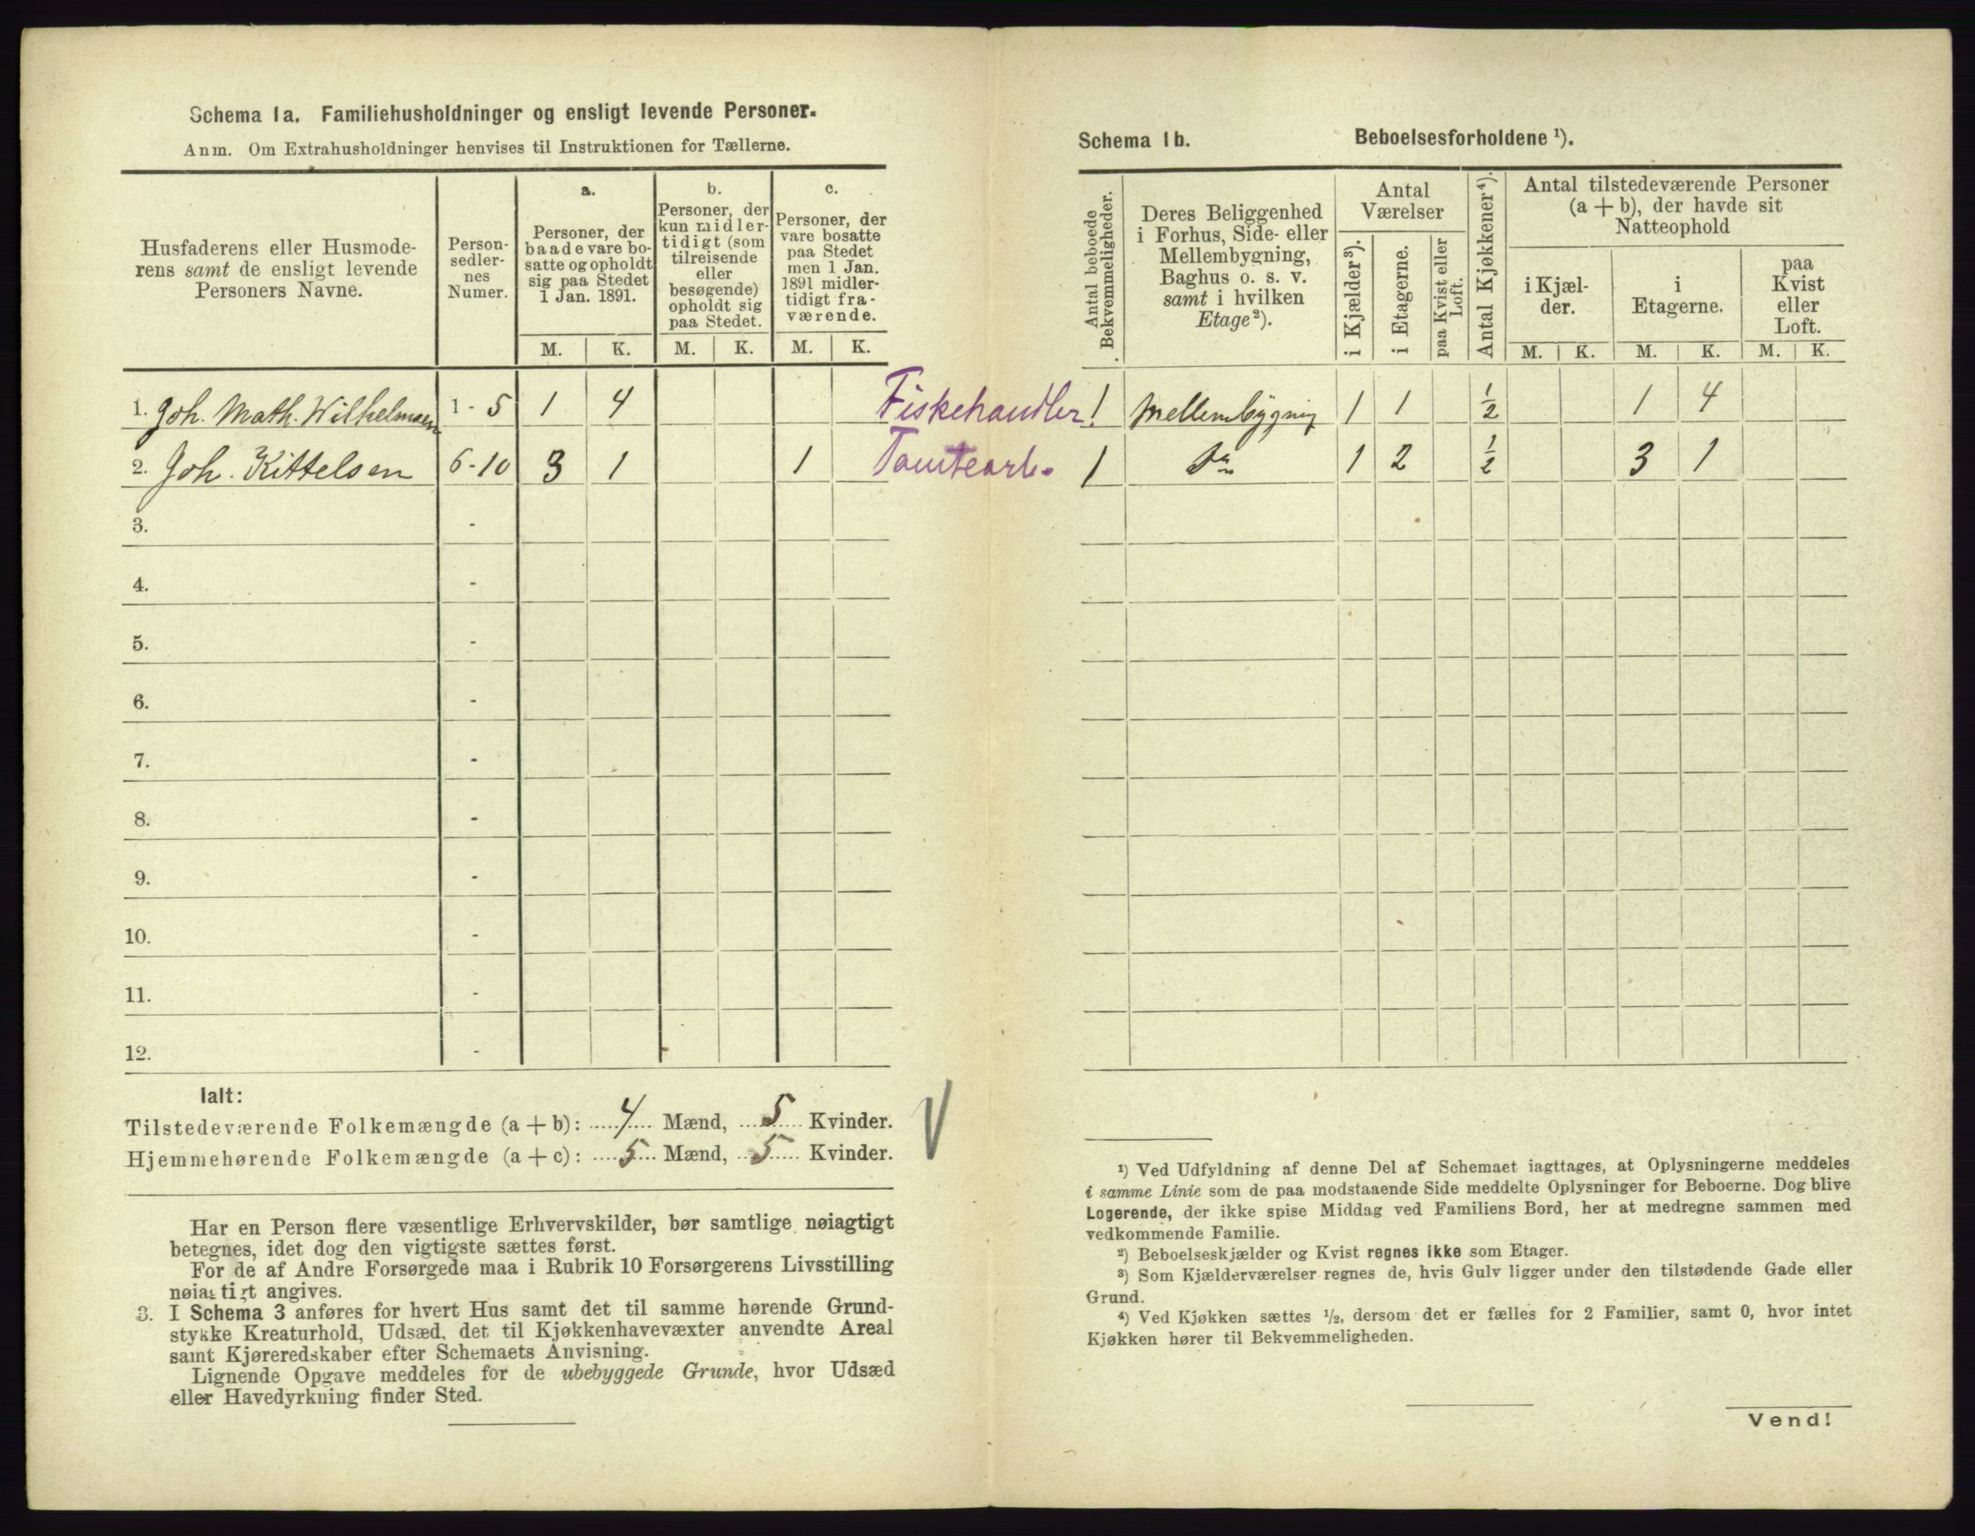 Schema 1a. Familiehusholdninger og ensligt levende Personer.
Anm. Om Extrahusholdninger henvises til Instruktionen for Tællerne.
Husfaderens eller Husmode-
rens samt de ensligt levende
Personers Navne.
Person-
sedler-
nes
Numer.
a.
Personer, der
baade vare bo-
satte og opholdt
sig paa Stedet
1 Jan. 1891.
b.
Personer, der
kun midler-
tidigt (som
tilreisende
eller
besøgende)
opholdt sig
paa Stedet.
c.
Personer, der
vare bosatte
paa Stedet
men 1 Jan.
1891 midler-
tidigt fra-
værende.
M. K. M. K. M. K.
1. Joh. Math. Wilhelmsen 1 - 5 1 4 Fiskehandler
2. Joh. Kittelsen 6 - 10 3 1 1 Tomtearb.
3. -
4. -
5. -
6. -
7. -
8. -
9. -
10. -
11. -
12. -
Ialt:
Tilstedeværende Folkemængde (a + b): 4 Mænd, 5 Kvinder.
Hjemmehørende Folkemængde (a + c): 5 Mænd, 5 Kvinder.
Har en Person flere væsentlige Erhvervskilder, bør samtlige nøiagtigt
betegnes, idet dog den vigtigste sættes først.
For de af Andre Forsørgede maa i Rubrik 10 Forsørgerens Livsstilling
nøiagtigt angives.
3. I Schema 3 anføres for hvert Hus samt det til samme hørende Grund-
stykke Kreaturhold, Udsæd, det til Kjøkkenhavevæxter anvendte Areal
samt Kjøreredskaber efter Schemaets Anvisning.
Lignende Opgave meddeles for de ubebyggede Grunde, hvor Udsæd
eller Havedyrkning finder Sted.
Schema 1b. Beboelsesforholdene ¹).
Antal beboede
Bekvemmeligheder.
Deres Beliggenhed
i Forhus, Side- eller
Mellembygning,
Baghus o. s. v.
samt i hvilken
Etage²).
Antal
Værelser
i Kjælder³).
i Etagerne.
paa Kvist eller
Loft.
Antal Kjøkkener⁴).
Antal tilstedeværende Personer
(a + b), der havde sit
Natteophold
i Kjæl-
der.
i
Etagerne.
paa
Kvist
eller
Loft.
M. K. M. K. M. K.
1 Mellembygning 1 1 ½ 1 4
1 Do 1 2 ½ 3 1
¹) Ved Udfyldning af denne Del af Schemaet iagttages, at Oplysningerne meddeles
i samme Linie som de paa modstaaende Side meddelte Oplysninger for Beboerne. Dog blive
Logerende, der ikke spise Middag ved Familiens Bord, her at medregne sammen med
vedkommende Familie.
²) Beboelseskjælder og Kvist regnes ikke som Etager.
³) Som Kjælderværelser regnes de, hvis Gulv ligger under den tilstødende Gade eller
Grund.
⁴) Ved Kjøkken sættes ½, dersom det er fælles for 2 Familier, samt 0, hvor intet
Kjøkken hører til Bekvemmeligheden.
Vend!